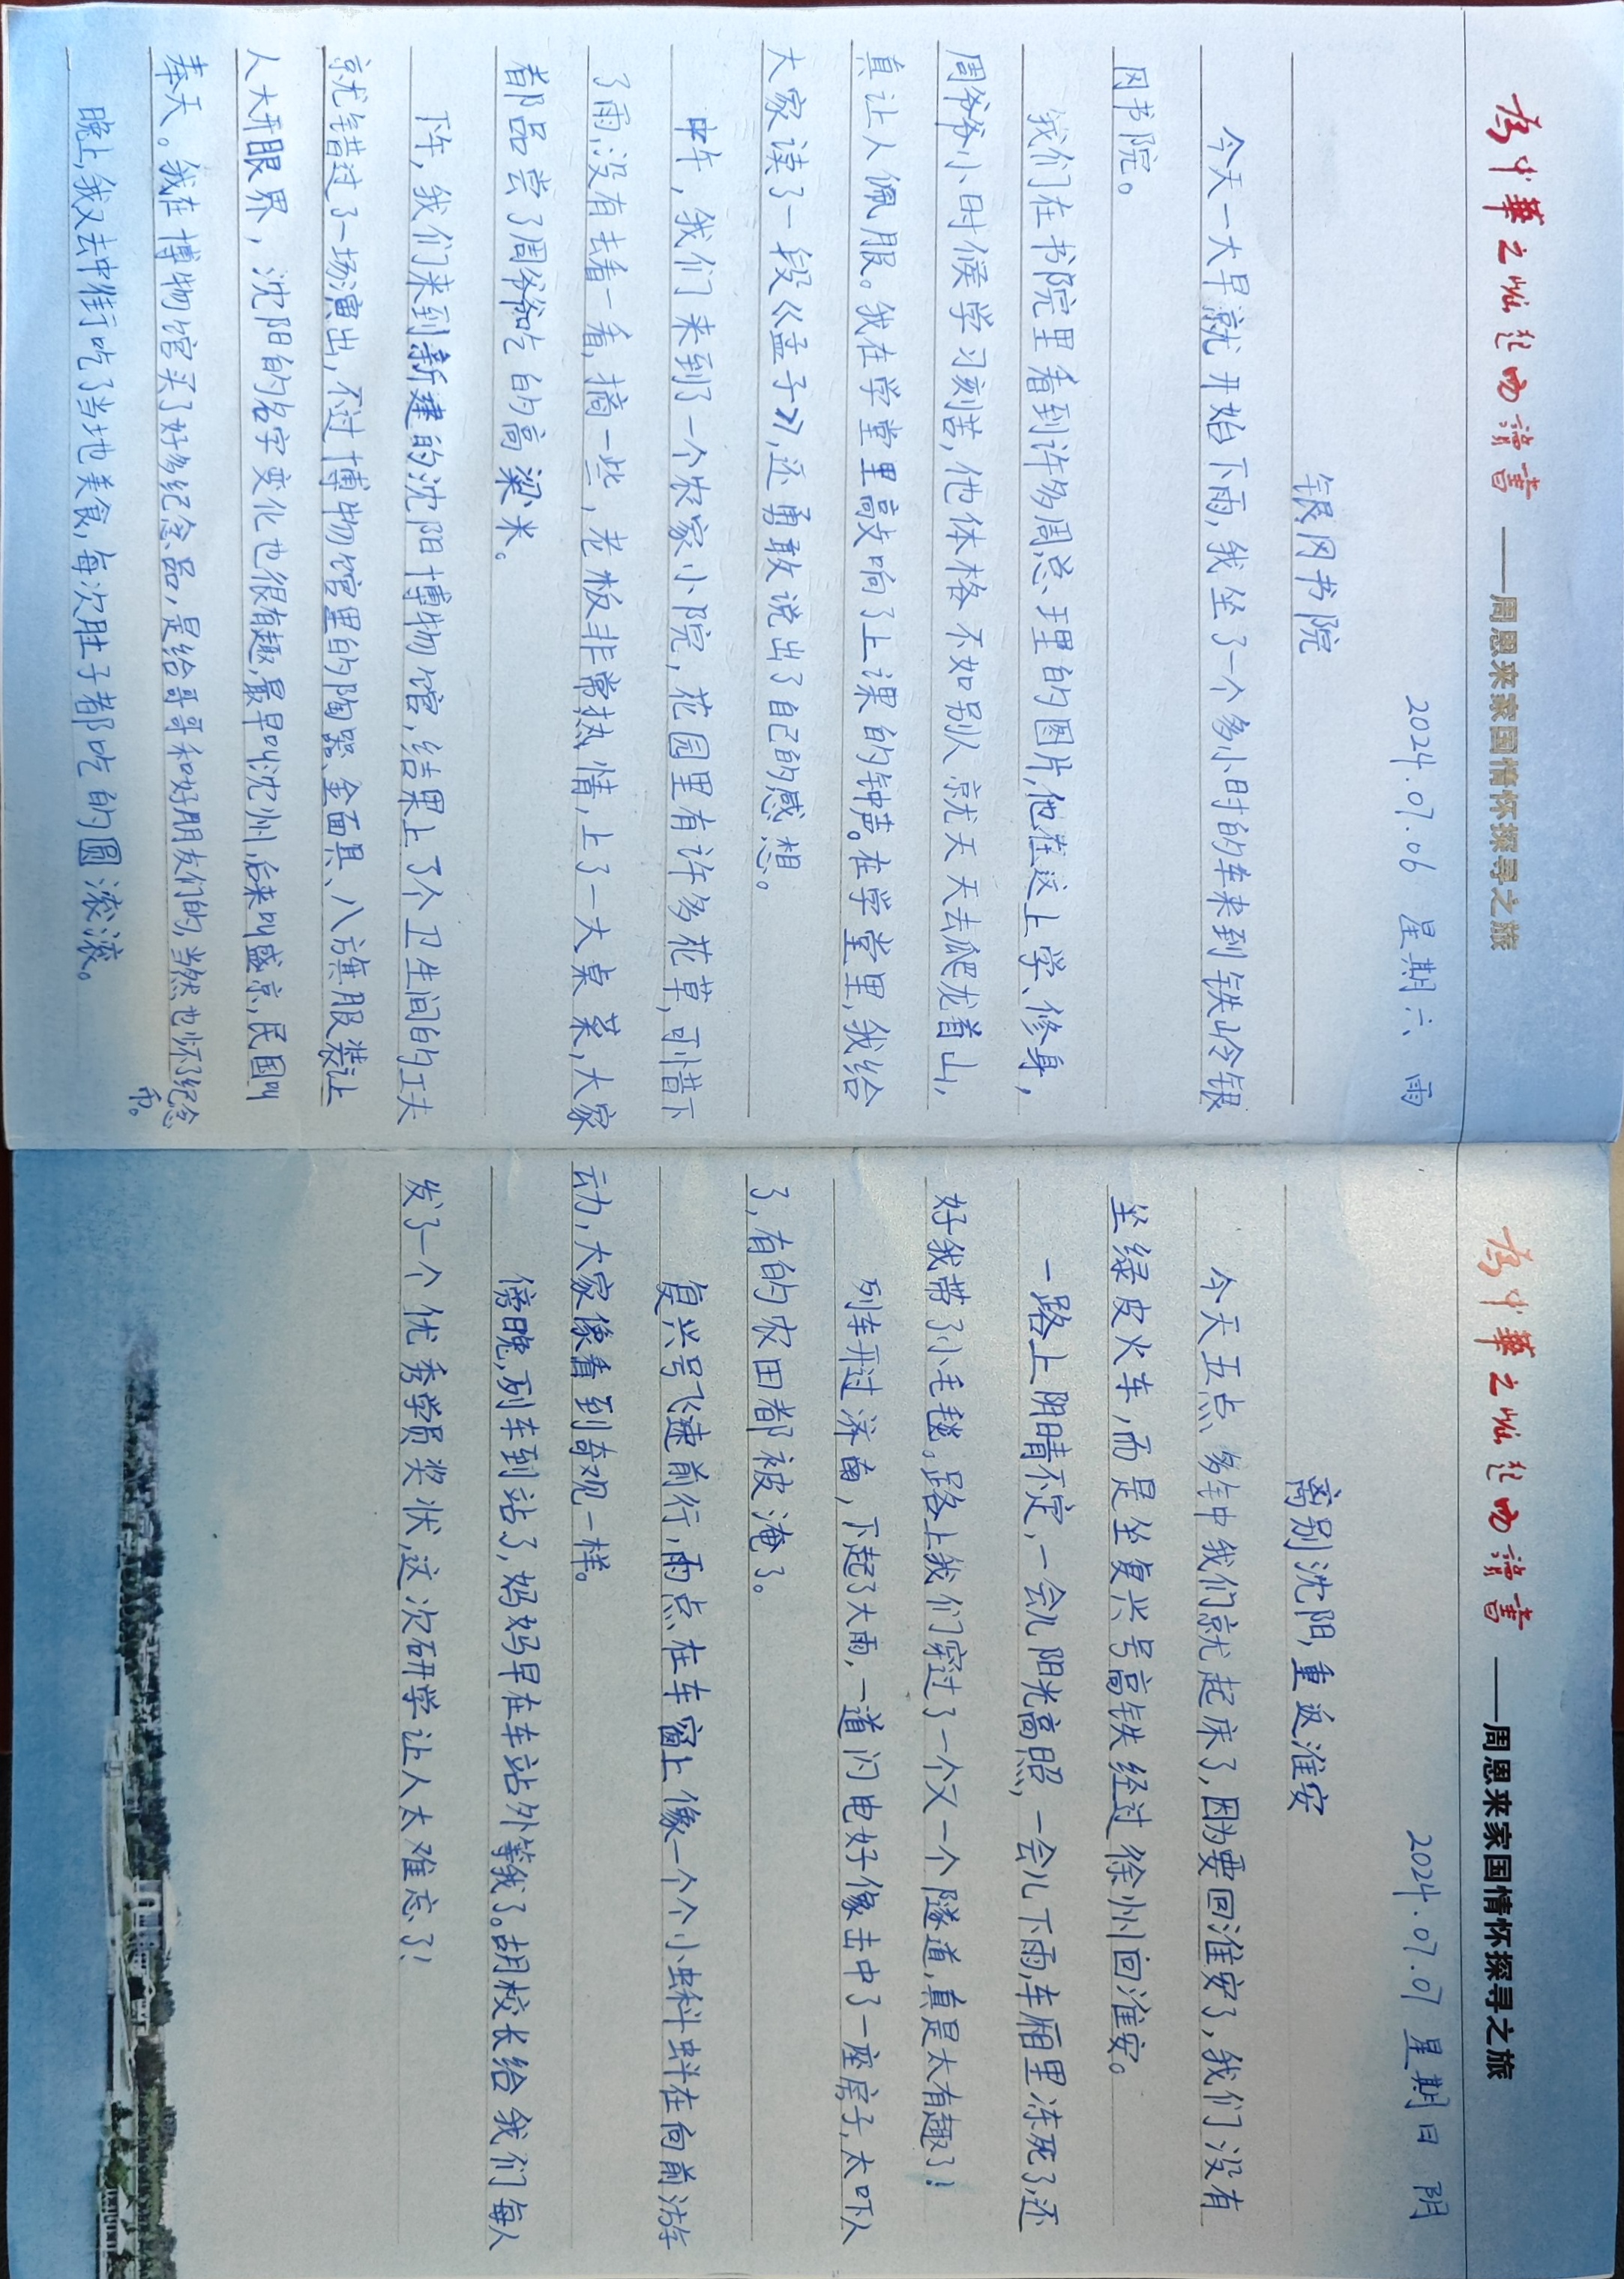 为中华之崛起而读书
——周恩来家国情怀探寻之旅
2024.07.06 星期六 雨
银冈书院
今天一大早就开始下雨,我坐了一个多小时的车来到铁岭银
冈书院。
我们在书院里看到许多周总理的图片,他在这上学、修身,
周爷爷小时候学习刻苦,他体格不如别人就天天去爬龙首山,
真让人佩服。我在学堂里敲响了上课的钟声。在学堂里,我给
大家读了一段《孟子》,还勇敢说出了自己的感想。
中午,我们来到了一个农家小院,花园里有许多花草,可惜下
了雨,没有去看一看,摘一些,老板非常热情,上了一大桌菜,大家
都品尝了周爷爷吃的高粱米。
下午,我们来到新建的沈阳博物馆,结果上了个卫生间的工夫
就错过了一场演出,不过博物馆里的陶器、金面具、八旗服装让
人大开眼界,沈阳的名字变化也很有趣,最早叫沈州,后来叫盛京,民国叫
奉天。我在博物馆买了好多纪念品,是给哥哥和好朋友们的,当然也怀了纪念
币。
晚上,我又去中街吃了当地美食,每次肚子都吃的圆滚滚。
为中华之崛起而读书
——周恩来家国情怀探寻之旅
2024.07.07 星期日 阴
离别沈阳,重返淮安
今天五点多钟我们就起床了,因为要回淮安了,我们没有
坐绿皮火车,而是坐复兴号高铁经过徐州回淮安。
一路上阴晴不定,一会儿阳光高照,一会儿下雨,车厢里冻死了,还
好我带了小毛毯。路上我们穿过了一个又一个隧道,真是太有趣了!
列车开过济南,下起了大雨,一道闪电好像击中了一座房子,太吓人
了,有的农田都被淹了。
复兴号飞速前行,雨点在车窗上像一个个小蝌蚪在向前游
动,大家像看到奇观一样。
傍晚,列车到站了,妈妈早在车站外等我了。胡校长给我们每人
发了一个优秀学员奖状,这次研学让人太难忘了!